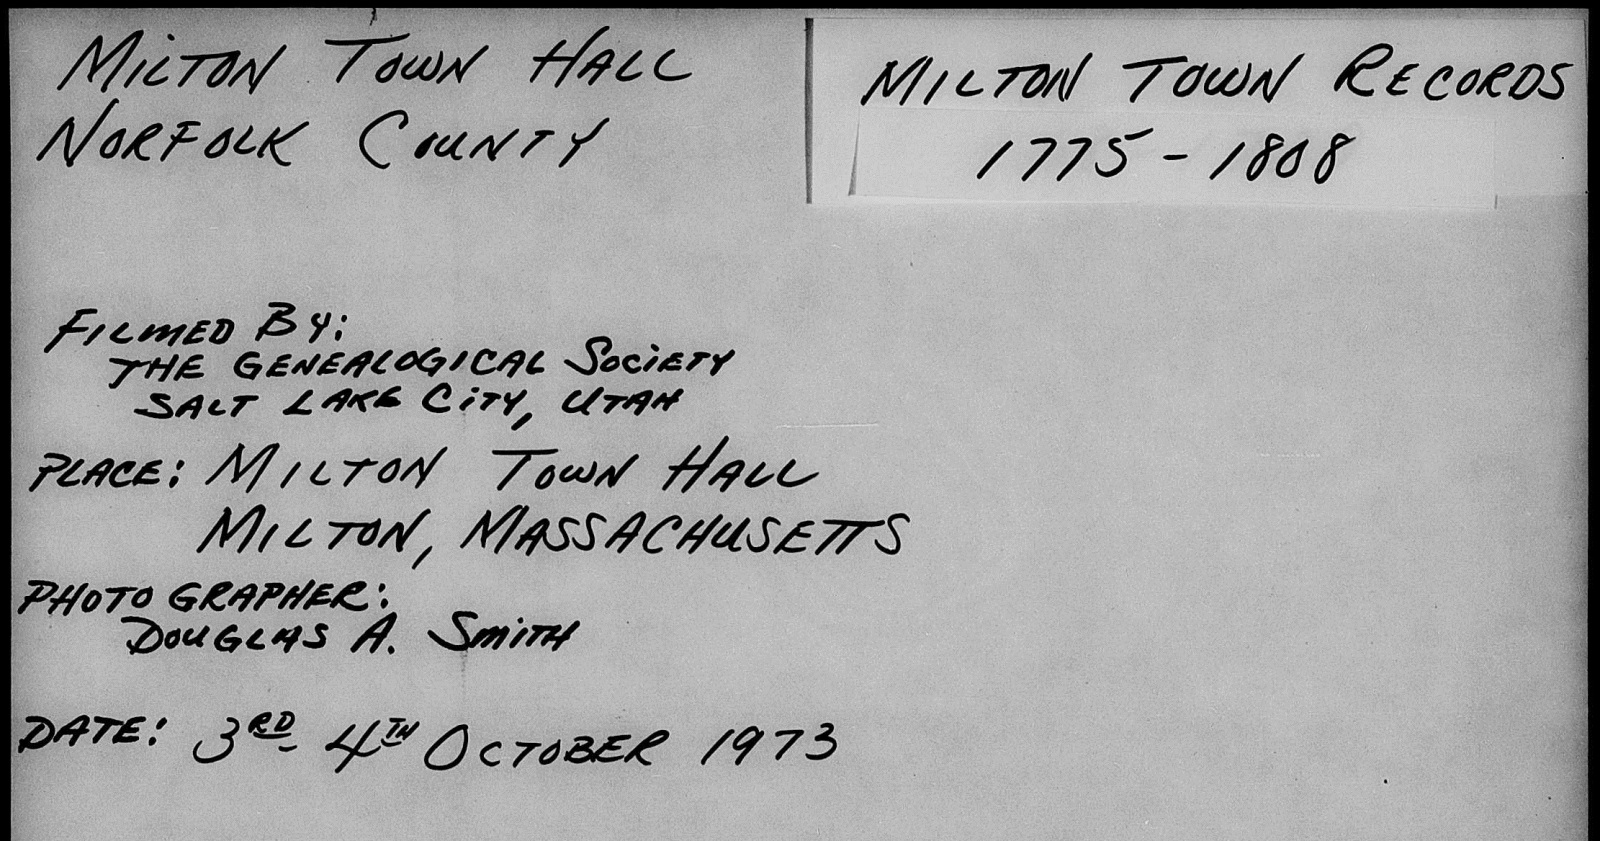 MILTON TOWN HALL
NORFOLK COUNTY
MILTON TOWN RECORDS
1775-1808
FILMED BY:
THE GENEALOGICAL SOCIETY
SALT LAKE CITY, UTAH
PLACE: MILTON TOWN HALL
MILTON, MASSACHUSETTS
PHOTOGRAPHER:
DOUGLAS A. SMITH
DATE: 3RD- 4TH OCTOBER 1973